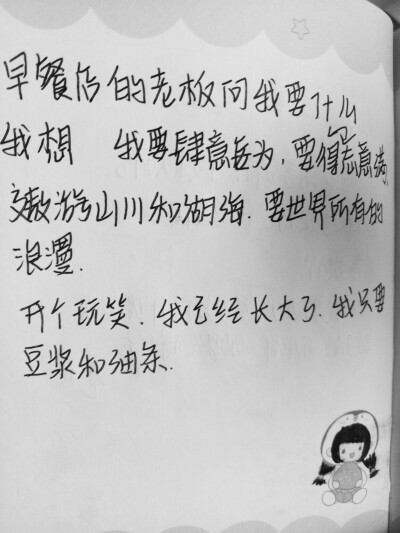 早餐店的老板问我要什么
我想 我要肆意妄为,要得志意满,
遨游山川和湖海.要世界所有的
浪漫.
开个玩笑.我已经长大了.我只要
豆浆和油条.